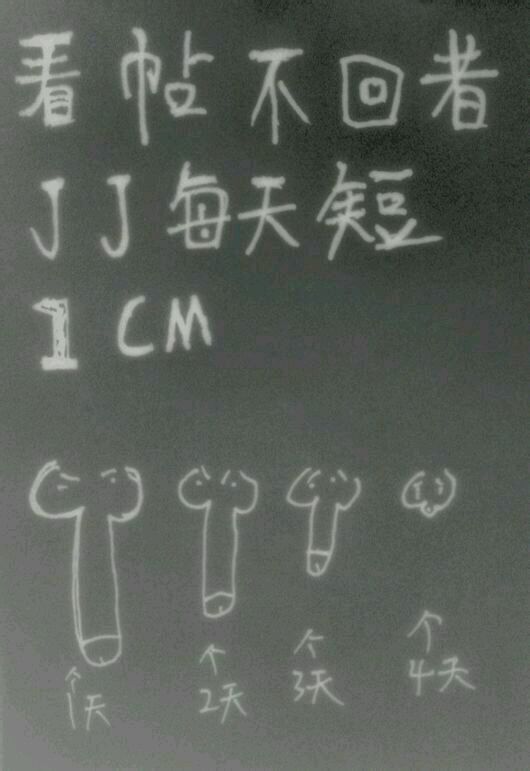 看帖不回者
JJ每天短
1CM
1天 2天 3天 4天